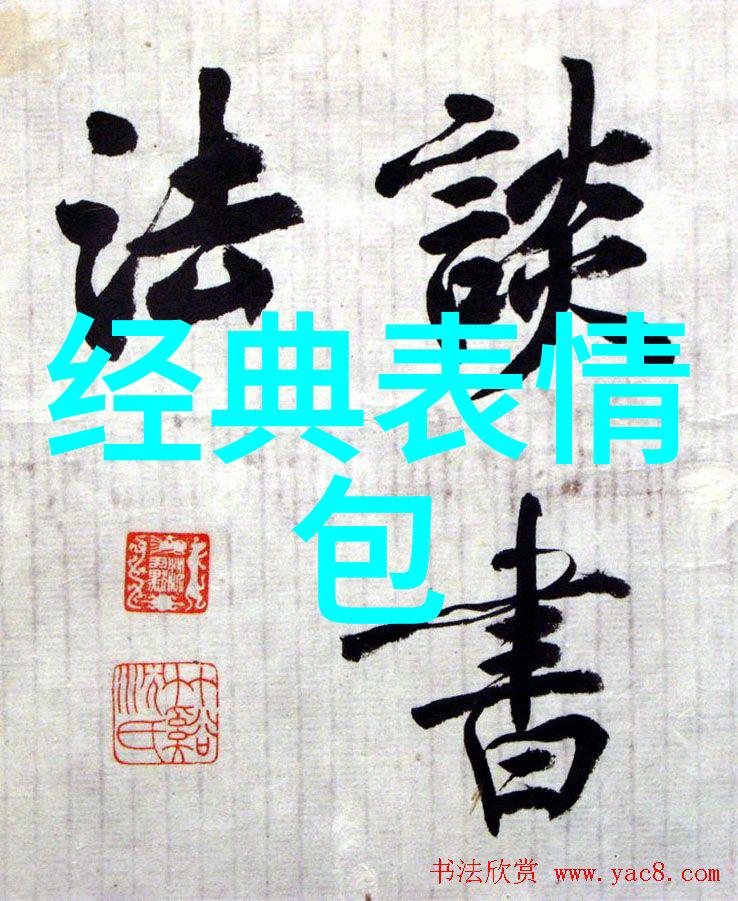 談書
法
经典表情
包
书法欣赏 www.yac8.com